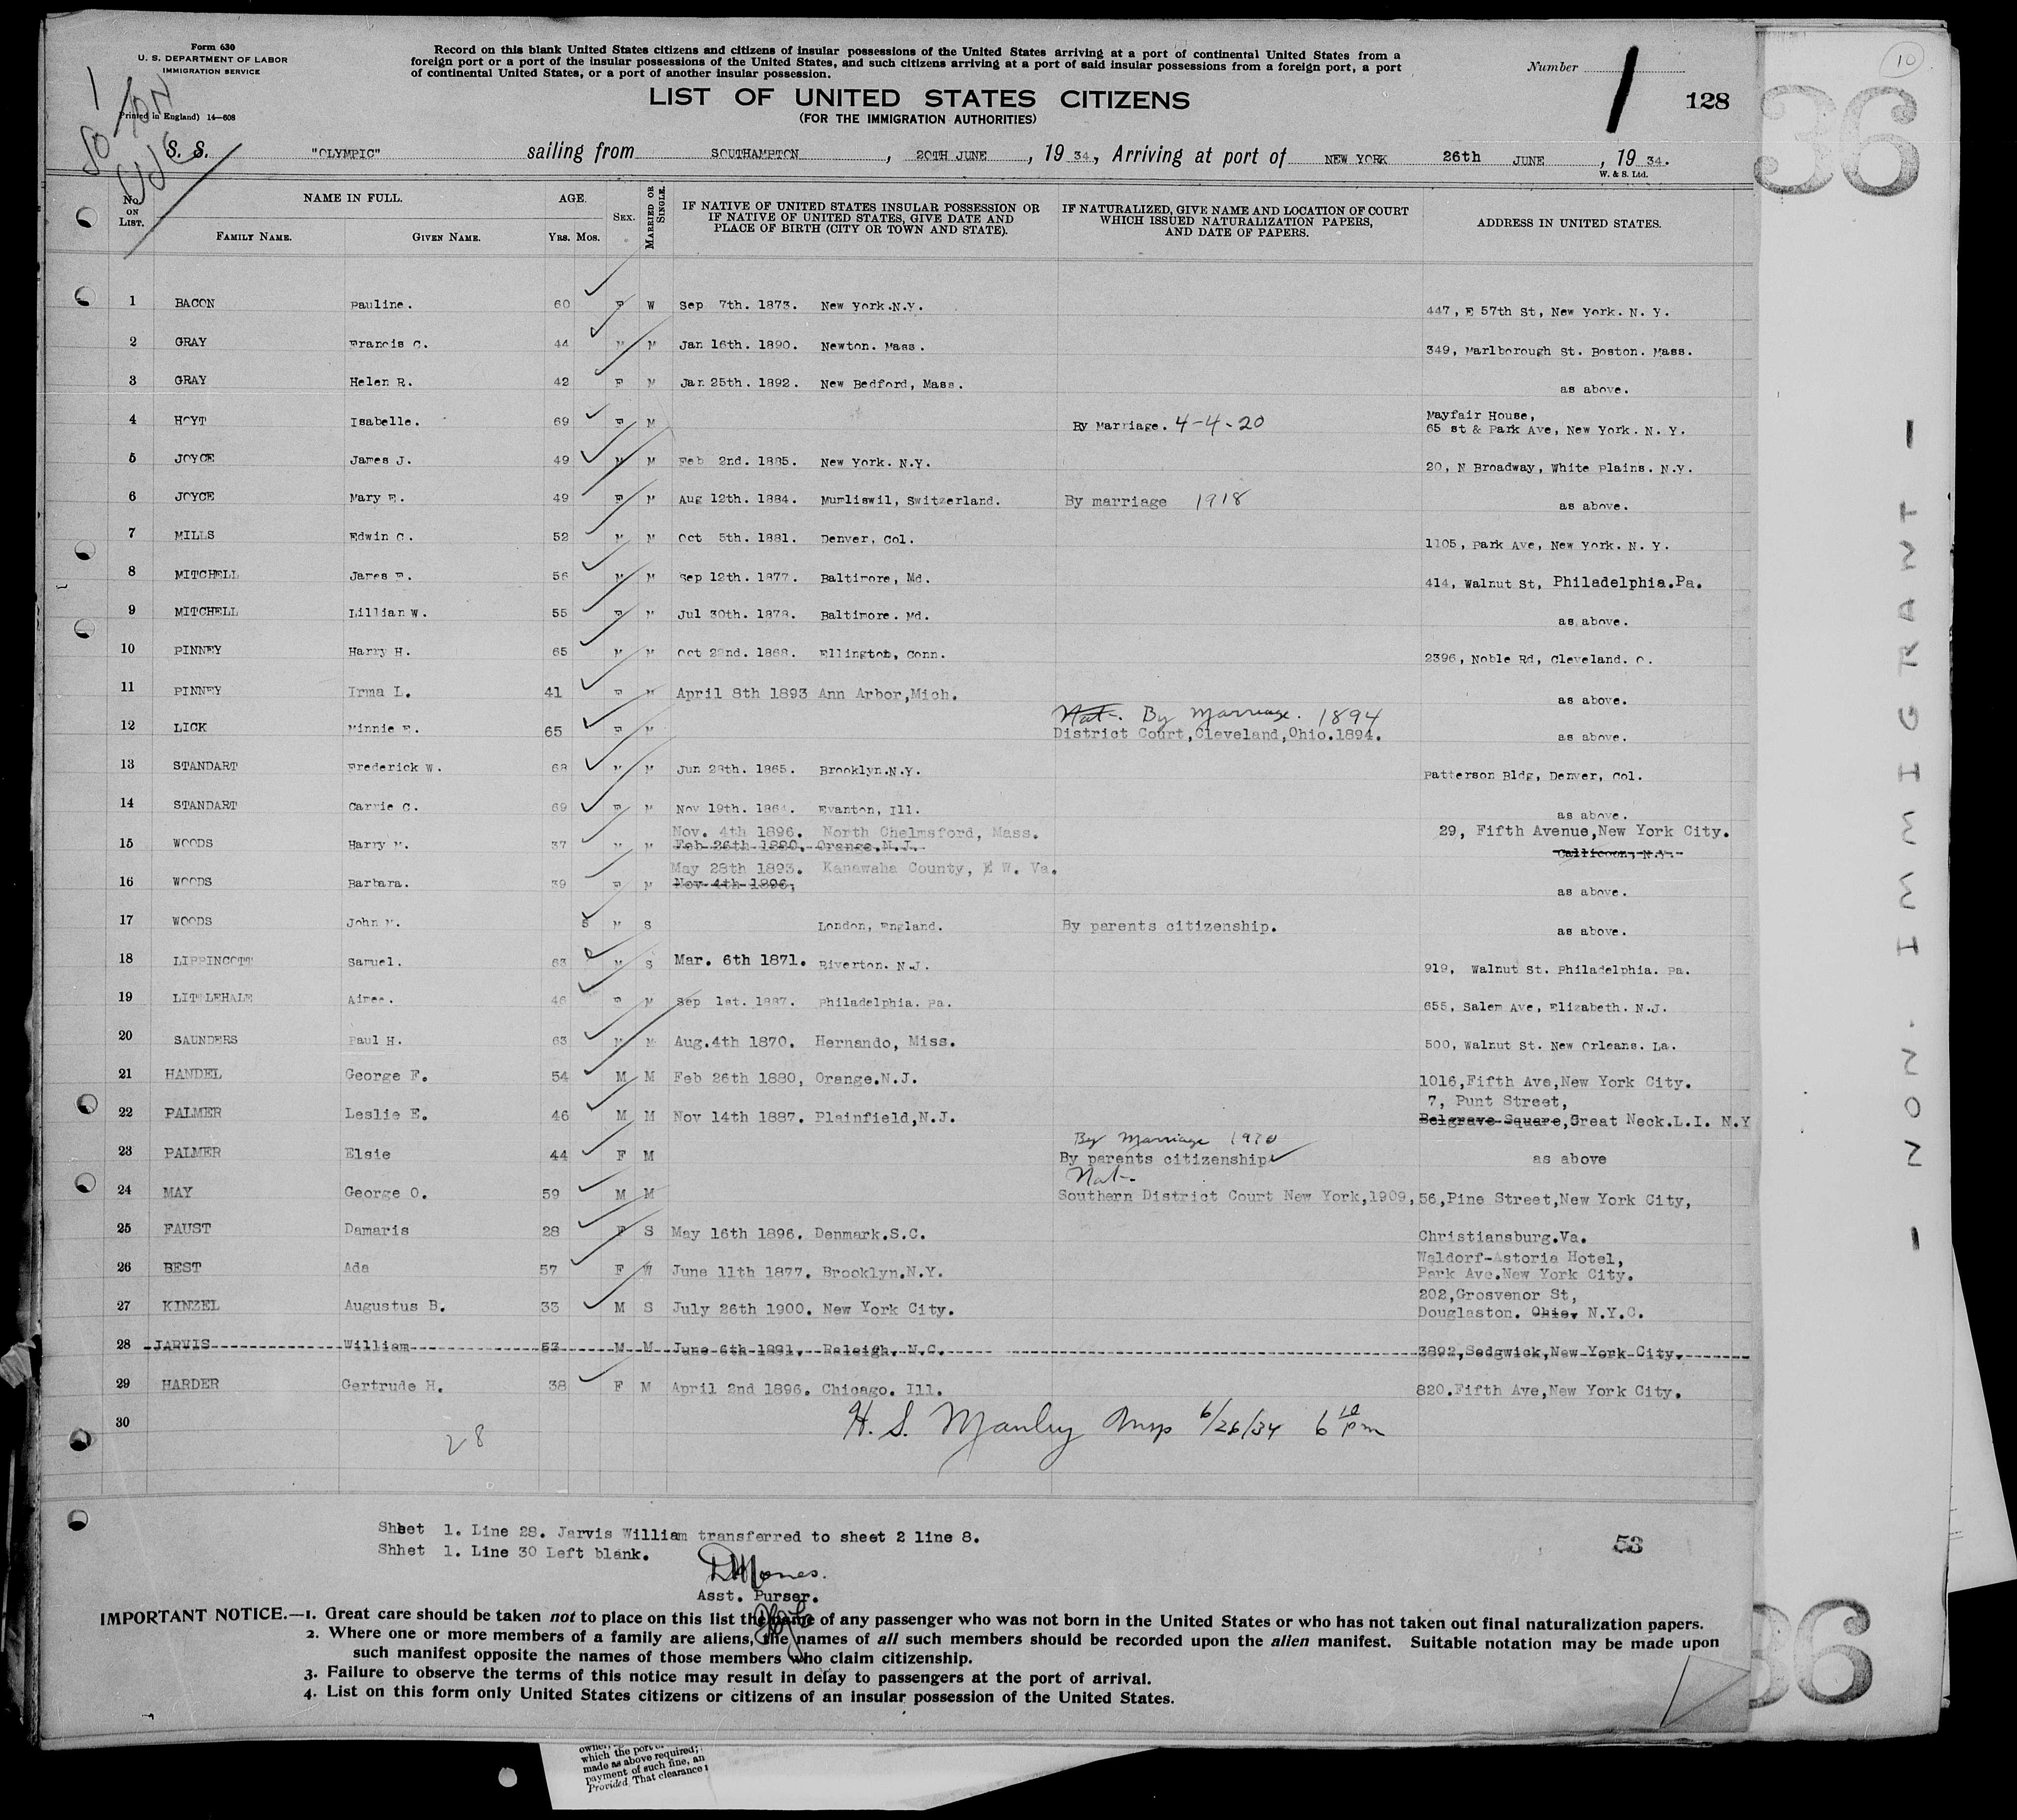 Form 630
U. S. DEPARTMENT OF LABOR
IMMIGRATION SERVICE
(Printed in England) 14—608
Record on this blank United States citizens and citizens of insular possessions of the United States arriving at a port of continental United States from a
foreign port or a port of the insular possessions of the United States, and such citizens arriving at a port of said insular possessions from a foreign port, a port
of continental United States, or a port of another insular possession.
Number 1
128
10
36
LIST OF UNITED STATES CITIZENS
(FOR THE IMMIGRATION AUTHORITIES)
S. S. "OLYMPIC" sailing from SOUTHAMPTON, 20TH JUNE, 19 34, Arriving at port of NEW YORK 26th JUNE, 19 34.
W. & S. Ltd.
No. ON LIST. NAME IN FULL. FAMILY NAME. GIVEN NAME. AGE. YRS. MOS. SEX. MARRIED OR SINGLE. IF NATIVE OF UNITED STATES INSULAR POSSESSION OR IF NATIVE OF UNITED STATES, GIVE DATE AND PLACE OF BIRTH (CITY OR TOWN AND STATE). IF NATURALIZED, GIVE NAME AND LOCATION OF COURT WHICH ISSUED NATURALIZATION PAPERS, AND DATE OF PAPERS. ADDRESS IN UNITED STATES.
1 BACON Pauline. 60 F W Sep 7th. 1873. New York.N.Y. 447, E 57th St, New York. N. Y.
2 GRAY Francis C. 44 M M Jan 16th. 1890. Newton. Mass. 349, Marlborough St. Boston. Mass.
3 GRAY Helen R. 42 F M Jan 25th. 1892. New Bedford, Mass. as above.
4 HOYT Isabelle. 69 F M By Marriage. 4-4-20 Mayfair House,
65 st & Park Ave, New York. N. Y.
5 JOYCE James J. 49 M M Feb 2nd. 1885. New York. N.Y. 20, N Broadway, White Plains. N.Y.
6 JOYCE Mary E. 49 F M Aug 12th. 1884. Mumliswil, Switzerland. By marriage 1918 as above.
7 MILLS Edwin C. 52 M M Oct 5th. 1881. Denver, Col. 1105, Park Ave, New York. N. Y.
8 MITCHELL James E. 56 M M Sep 12th. 1877. Baltimore, Md. 414, Walnut St, Philadelphia.Pa.
9 MITCHELL Lillian W. 55 F M Jul 30th. 1878. Baltimore. Md. as above.
10 PINNEY Harry H. 65 M M Oct 22nd. 1868. Ellington, Conn. 2396, Noble Rd, Cleveland. O.
11 PINNEY Irma L. 41 F M April 8th 1893 Ann Arbor,Mich. as above.
12 LICK Minnie E. 65 F M Nat. By Marriage. 1894
District Court,Cleveland,Ohio.1894. as above.
13 STANDART Frederick W. 68 M M Jun 28th. 1865. Brooklyn.N.Y. Patterson Bldg, Denver, Col.
14 STANDART Carrie C. 69 F M Nov 19th. 1864. Evanton, Ill. as above.
Nov. 4th 1896. North Chelmsford, Mass. 29, Fifth Avenue,New York City.
15 WOODS Harry M. 37 M M Feb 26th 1880, Orange.N.J. Callicoon, N.Y.
May 28th 1893. Kanawaha County, E W. Va.
16 WOODS Barbara. 39 F M Nov 4th 1896, as above.
17 WOODS John M. 5 M S London, England. By parents citizenship. as above.
18 LIPPINCOTT Samuel. 63 M S Mar. 6th 1871. Riverton. N.J. 919, Walnut St. Philadelphia. Pa.
19 LITTLEHALE Aimee. 46 F M Sep 1st. 1887. Philadelphia. Pa. 655, Salem Ave, Elizabeth. N.J.
20 SAUNDERS Paul H. 63 M M Aug.4th 1870. Hernando, Miss. 500, Walnut St. New Orleans. La.
21 HANDEL George F. 54 M M Feb 26th 1880, Orange.N.J. 1016,Fifth Ave,New York City.
7, Punt Street,
22 PALMER Leslie E. 46 M M Nov 14th 1887. Plainfield,N.J. Belgrave Square,Great Neck.L.I. N.Y
By Marriage 1920
23 PALMER Elsie 44 F M By parents citizenship as above
Nat.
24 MAY George O. 59 M M Southern District Court New York,1909, 56,Pine Street,New York City,
25 FAUST Damaris 28 F S May 16th 1896. Denmark.S.C. Christiansburg.Va.
Waldorf-Astoria Hotel,
26 BEST Ada 57 F W June 11th 1877. Brooklyn.N.Y. Park Ave.New York City.
202,Grosvenor St,
27 KINZEL Augustus B. 33 M S July 26th 1900. New York City. Douglaston. Ohio, N.Y.C.
28 JARVIS William 53 M M June 6th 1891, Raleigh, N.C. 3892,Sedgwick,New York City.
29 HARDER Gertrude H. 38 F M April 2nd 1896. Chicago. Ill. 820.Fifth Ave,New York City.
30 H. S. Manley Insp 6/26/34 6 10 pm
28
Shhet 1. Line 28. Jarvis William transferred to sheet 2 line 8.
Shhet 1. Line 30 Left blank.
53
Asst. Purser.
IMPORTANT NOTICE.—1. Great care should be taken not to place on this list the name of any passenger who was not born in the United States or who has not taken out final naturalization papers.
2. Where one or more members of a family are aliens, the names of all such members should be recorded upon the alien manifest. Suitable notation may be made upon
such manifest opposite the names of those members who claim citizenship.
3. Failure to observe the terms of this notice may result in delay to passengers at the port of arrival.
4. List on this form only United States citizens or citizens of an insular possession of the United States.
- NON-IMMIGRANT -
36
which the port
made as above required;
payment of such fine, an
Provided, That clearance